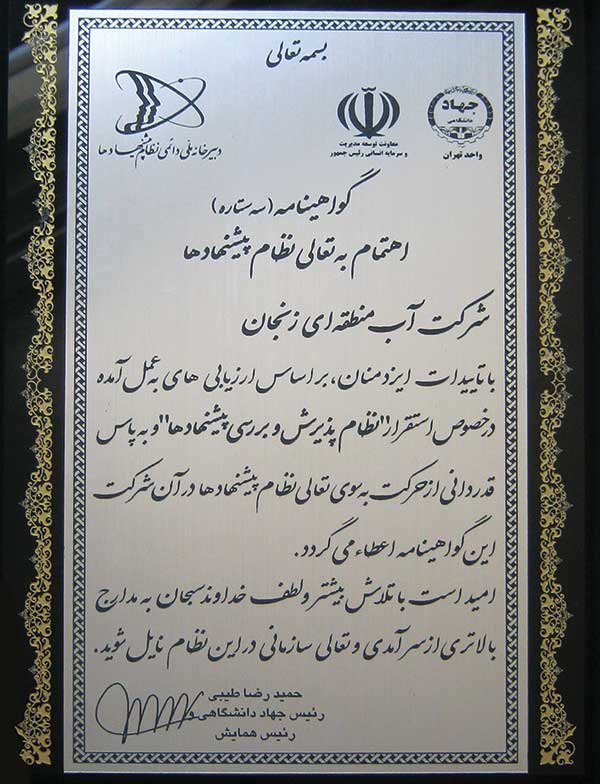 بسمه تعالی
جهاد
دانشگاهی
واحد تهران
معاونت توسعه مدیریت
و سرمایه انسانی رئیس جمهور
دبیرخانه ملی دائمی نظام پیشنهادها
گواهینامه (سه ستاره)
اهتمام به تعالی نظام پیشنهادها
شرکت آب منطقه ای زنجان
با تاییدات ایزد منان، بر اساس ارزیابی های به عمل آمده
در خصوص استقرار "نظام پذیرش و بررسی پیشنهادها" و به پاس
قدردانی از حرکت به سوی تعالی نظام پیشنهادها در آن شرکت
این گواهینامه اعطاء می گردد.
امید است با تلاش بیشتر و لطف خداوند سبحان به مدارج
بالاتری از سرآمدی و تعالی سازمانی در این نظام نایل شوید.
حمید رضا طیبی
رئیس جهاد دانشگاهی و
رئیس همایش